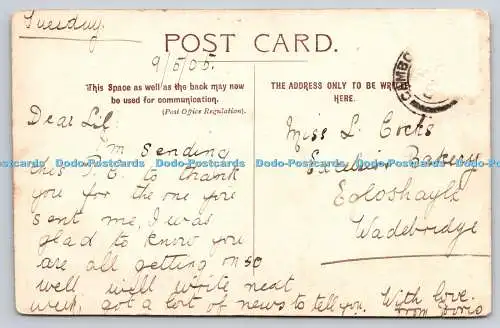 Tuesday
POST CARD.
9/5/05.
This Space as well as the back may now
be used for communication.
(Post Office Regulation).
THE ADDRESS ONLY TO BE
HERE.
CAMBO
Dear Lil,
I'm sending
this P.C. to thank
you for the one you
sent me, I was
glad to know you
are all getting on so
well will write next
week, got a lot of news to tell you. With love
from
Miss L. Cocks
Excelsior Bakery
Egloshayle
Wadebridge
Dodo-Postcards Dodo-Postcards Dodo-Postcards Dodo-Postcards Dodo-Postcards